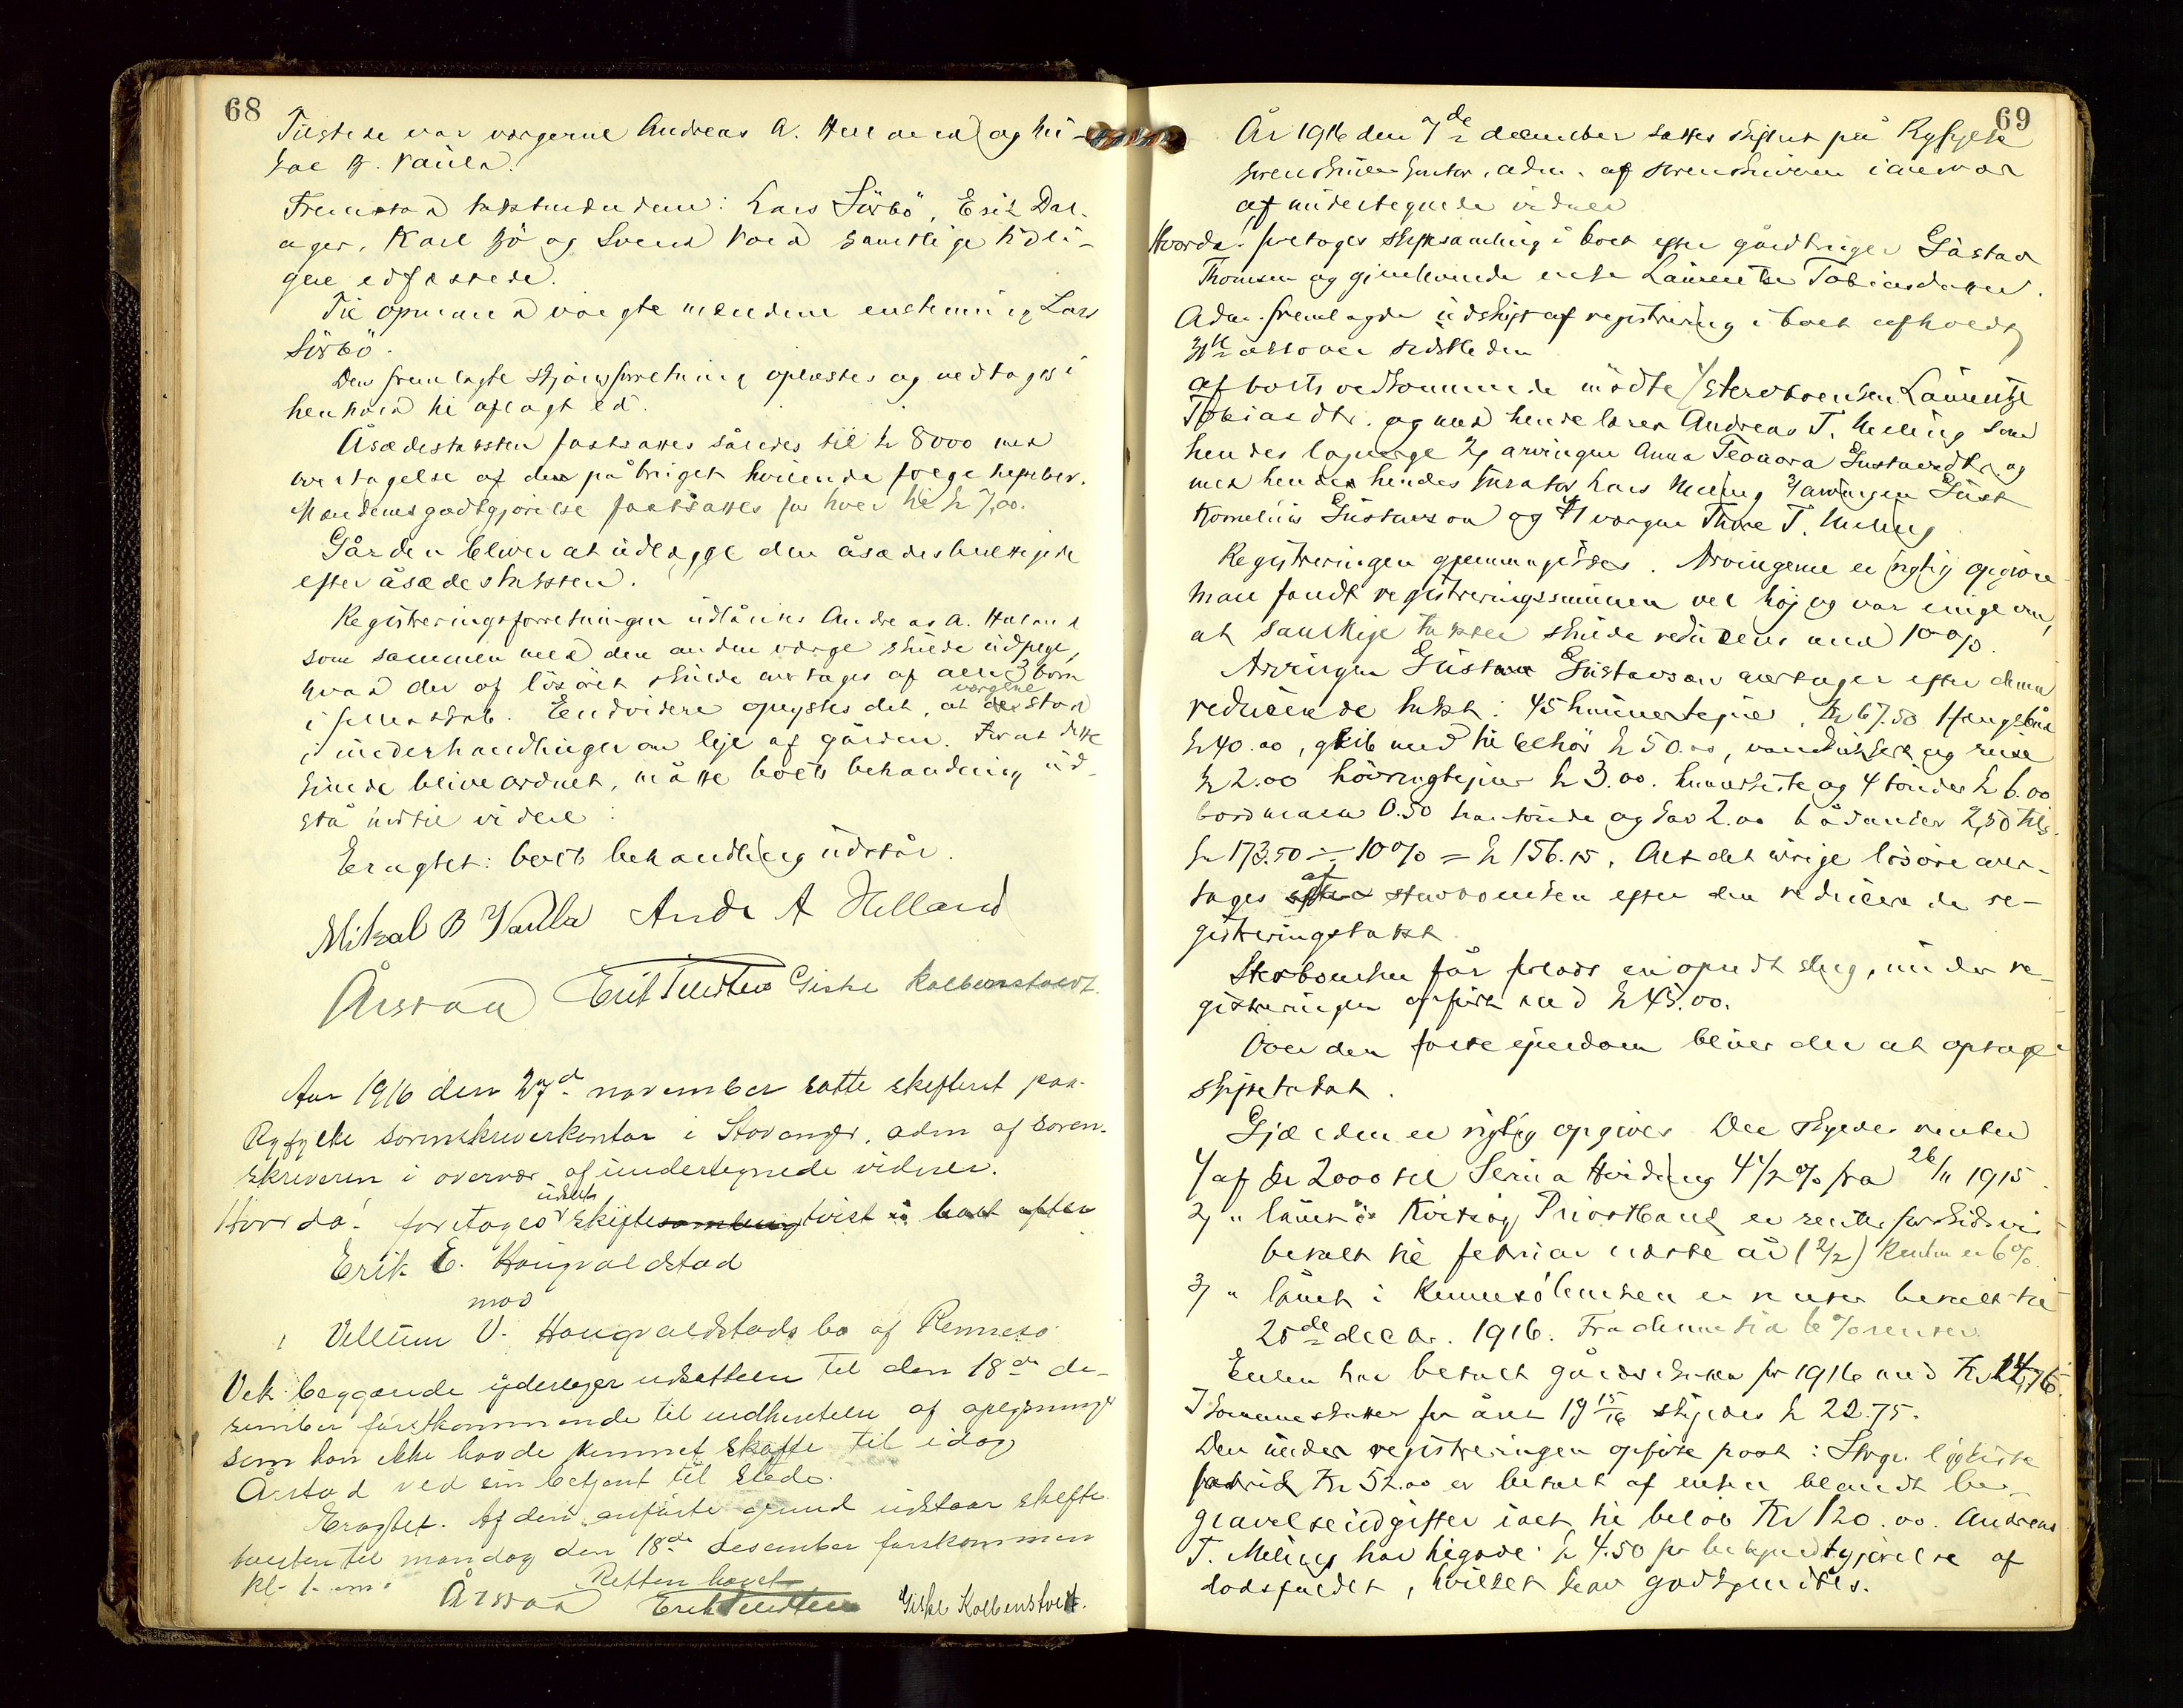 68
Tilstede var vergerne Andreas A. Helland og Mi-
kal B. Vaula.
Fremstod takstmændene: Lars Sörbö, Erik Dal-
ager, Karl Bö og Svend Vold samtlige tidli-
gere edfæstede.
Til opmand valgte mændene enstemmig Lars
Sörbö.
Den fremlagte skjönsforretning oplæstes og vedtoges i
henhold til aflagt ed.
Åsædestaksten fastsattes således til kr 8000 med
overtagelse af den på bruget hvilende
Mændenes godtgjörelse fastsattes for hver til kr 7,00.
Gården bliver at udlægge den åsædesberettigede
efter åsædestaksten.
Registreringsforretningen udlåntes Andreas A. Helland
som sammen med den anden verge skulde udpege,
hvad der af lösöret skulde overtages af alle 3 börn
i fællesskab. Endvidere oplystes det, at vergene stod
i underhandlinger om leje af gården. Forat dette
kunde blive ordnet, måtte boets behandling ud-
stå indtil videre.
Eragtet: boets behandling udstår.
Mikal B Vaula Andr A Helland
Årstad Erik Tendten Giske Kolbenstvedt.
Aar 1916 den 27d. november satte skifteret paa
Ryfylke sorenskriverkontor i Stavanger, adm af soren-
skriveren i overvær af undertegnede vidner.
Hvor da! foretoges udsat skiftesamling tvist i boet efter
Erik E. Haugvaldstad
mod
Villum V. Haugvaldstads bo af Rennesö
Vek. begjærede yderliger udsættelse til den 18de de-
sember förstkommende til indhentelse af oplysninger
som han ikke havde kunnet skaffe til idag
Årstad ved sin betjent til stede.
Eragtet. Af den anförte grund udstaar skifte
tvisten til mandag den 18de desember förstkommen
kl. 1. em. Retten hævet
Årstad Erik Tendten Giske Kolbenstvedt.
69
År 1916 den 7de december sattes skifteret på Ryfylke
sorenskriverkontor, adm. af sorenskriveren i overvær
af undertegnede vidner
Hvorda! foretoges skiftesamling i boet efter gårdbruger Gustav
Thomsen og gjenlevende enke Lauritse Tobiasdatter.
Adm. fremlagde udskrift af registrering i boet afholdt
31te oktober sidstleden
Af boets vedkommende mödte 1/ sterboenken Lauritse
Tobiasdtr. og med hende lærer Andreas T. Meling som
hendes lagverge 2/ arvingen Anna Teodora Gustavsdtr og
med hendes hendes kurator Lars Meling 3/ arvingen Gust
Kornelius Gustavson og 4/ vergen Thore T. Meling
Registreringen gjennemgikkes. Arvingerne er rigtig opgivne
Man fandt registreringssummen vel höj og var enige om,
at samtlige takster skulde reduceres med 10%.
Arvingen Gustav Gustavson overtager efter denne
reducerede takst: 45 hummertejner, kr 67.50
kr 40.00, med tilbehör kr 50.00,
kr 2.00 kr 3.00. hummerkiste og 4 tönder kr 6.00
0.50 og 2.00 2,50 tils.
kr 173.50 ÷ 10% = kr 156.15. Alt det övrige lösöre over-
tages efter af sterboenken efter den reducerede re-
gistreringstakst
Sterboenken får forlods en opredt seng, under re-
gistreringen opfört med kr 45.00.
Over den faste ejendom bliver der at optage
skiftetakst.
Gjælden er rigtig opgivet Der skyldes renter
1/ af kr 2000 til Serina Hviding 4 1/2 % fra 26/11 1915.
2/ " lånet i Kvitsöy Privatbank er renter forskudsvis
betalt til februar næste år (2/2) Renten er 6%.
3/ " lånet i Rennesö banken er renter betalt til
20de decbr. 1916. Fra denne tid 6% renter
Enken har betalt gårdsskatten for 1916 med kr 14,76.
I kommuneskatter for året 19 15/16 skyldes kr 22.75.
Den under registreringen opförte post: Stvgr. ligkiste
fabrik kr 52.00 er betalt af enken blandt be-
gravelseudgifter ialt til belöb kr 120.00. Andreas
T. Meling har tilgode kr 4.50 for bekjendtgjörelse af
dödsfaldet, hvilket godkjendtes.